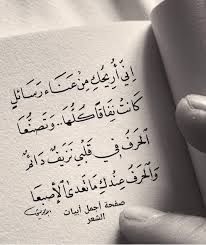 إِنِّي أُرِيحُكِ مِنْ عَنَاءِ رَسَائِلٍ
كَانَتْ نِفَاقًا كُلُّهَا.. وَتَصَنُّعَا
الحَرْفُ فِي قَلْبِي نَزِيفٌ دَائِمٌ
وَالحَرْفُ عِنْدَكِ مَا تَعَدَّى الإِصْبَعَا
صفحة أجمل أبيات
الشعر